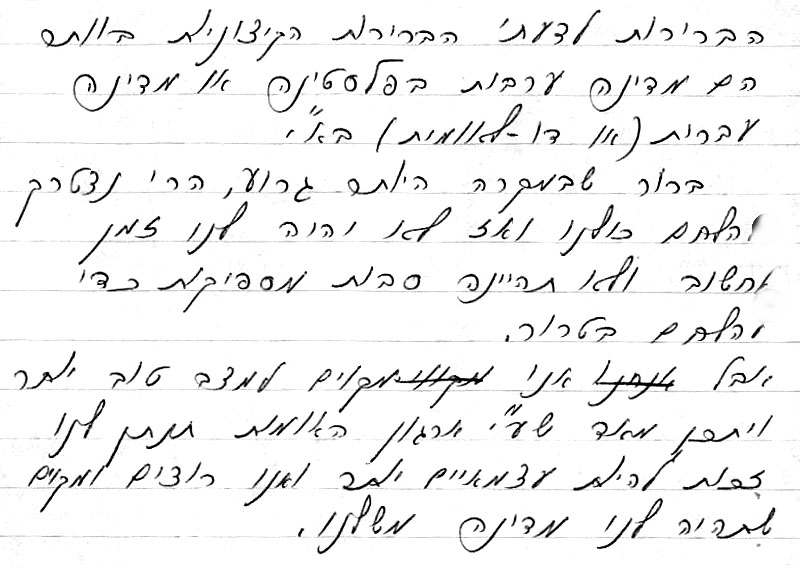 הברירות לדעתי הברירות הקיצוניות ביותר
הם מדינה ערבית בפלסטינה או מדינה
עברית (או דו-לאומית) בא"י.
ברור שבמקרה היותר גרוע, הרי נצטרך
להלחם כולנו ואז לא יהיה לנו זמן
לחשוב ולא תהיינה סבות מספיקות כדי
להלחם בטרור.
אבל אנחנו אני מקוים למצב טוב יותר
ויתכן מאד שע"י ארגון האומות תנתן לנו
זכות להיות עצמאיים יותר ואנו רוצים ומקוים
שתהיה לנו מדינה משלנו.